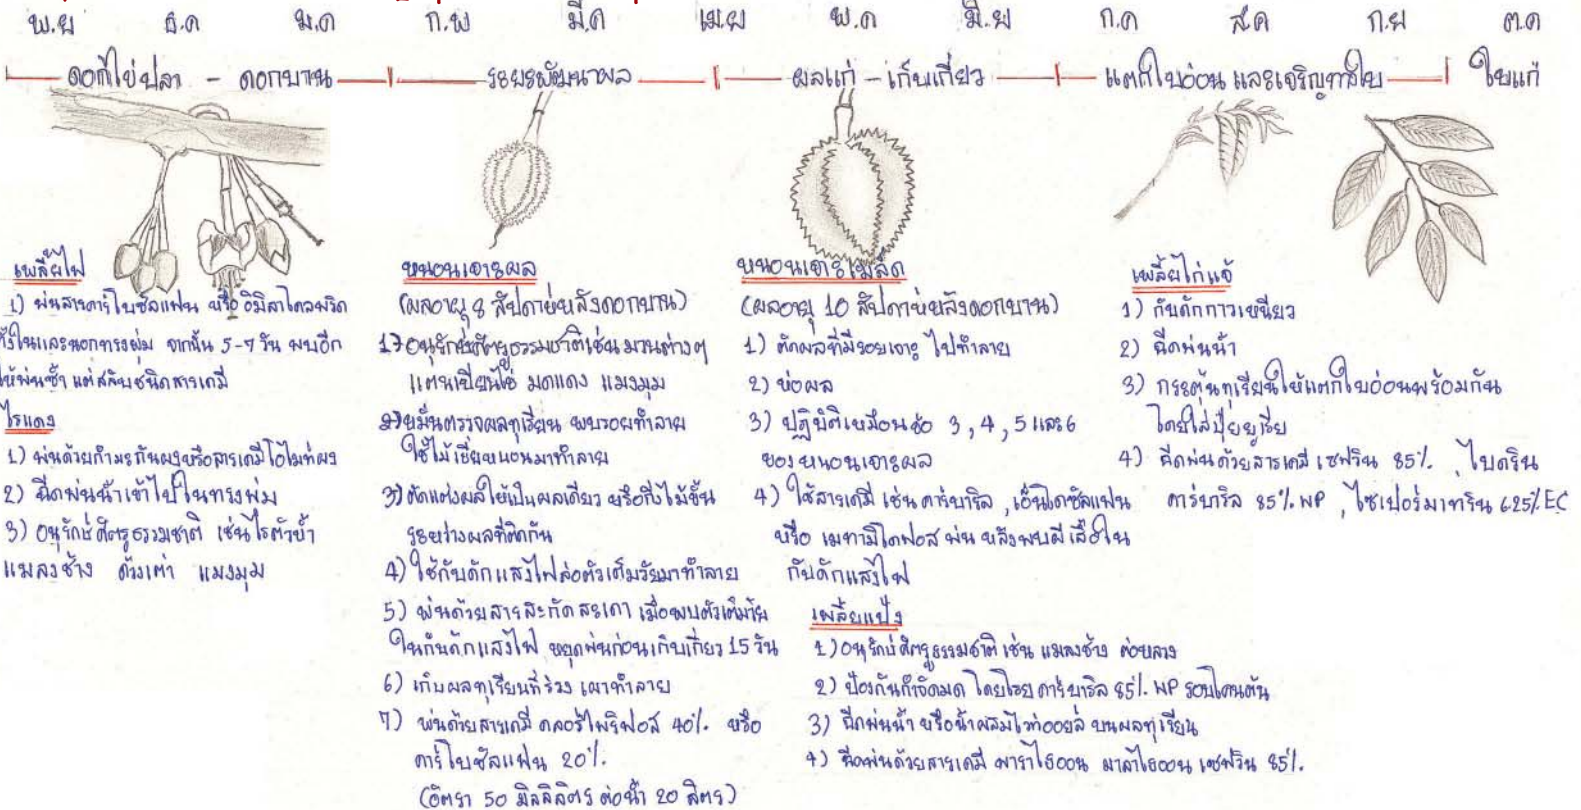 พ.ย ธ.ค ม.ค ก.พ มี.ค เม.ย พ.ค มิ.ย ก.ค ส.ค ก.ย ต.ค
ดอกไข่ปลา - ดอกบาน ระยะพัฒนาผล ผลแก่ - เก็บเกี่ยว แตกใบอ่อน และเจริญทางใบ ใบแก่
เพลี้ยไฟ
1) พ่นสารคาร์โบซัลแฟน หรือ อิมิดาโคลพริด
ทั้งในและนอกทรงพุ่ม จากนั้น 5-7 วัน พบอีก
ให้พ่นซ้ำ แต่สลับชนิดสารเคมี
ไรแดง
1) พ่นด้วยกำมะถันผงหรือสารเคมีโอไมท์ผง
2) ฉีดพ่นน้ำเข้าไปในทรงพุ่ม
3) อนุรักษ์ศัตรูธรรมชาติ เช่นไรตัวห้ำ
แมลงช้าง ด้วงเต่า แมงมุม
หนอนเจาะผล
(ผลอายุ 8 สัปดาห์หลังดอกบาน)
1) อนุรักษ์ศัตรูธรรมชาติเช่น มวนต่างๆ
แตนเบียนไข่ มดแดง แมงมุม
2) หมั่นตรวจผลทุเรียน พบรอยทำลาย
ใช้ไม้เขี่ยหนอนมาทำลาย
3) ตัดแต่งผลให้เป็นผลเดียว หรือกิ่งไม้ขั้น
ระหว่างผลที่ติดกัน
4) ใช้กับดักแสงไฟล่อตัวเต็มวัยมาทำลาย
5) พ่นด้วยสารสะกัดสะเดา เมื่อพบตัวเต็มวัย
ในกับดักแสงไฟ หยุดพ่นก่อนเก็บเกี่ยว 15 วัน
6) เก็บผลทุเรียนที่ร่วง เผาทำลาย
7) พ่นด้วยสารเคมี คลอร์ไพริฟอส 40% หรือ
คาร์โบซัลแฟน 20%
(อัตรา 50 มิลลิลิตร ต่อน้ำ 20 ลิตร)
หนอนเจาะเมล็ด
(ผลอายุ 10 สัปดาห์หลังดอกบาน)
1) ตัดผลที่มีรอยเจาะ ไปทำลาย
2) ห่อผล
3) ปฏิบัติเหมือนข้อ 3, 4, 5 และ 6
ของหนอนเจาะผล
4) ใช้สารเคมี เช่น คาร์บาริล, เอ็นโดซัลแฟน
หรือ เมทามิโดฟอส พ่น หลังพบผีเสื้อใน
กับดักแสงไฟ
เพลี้ยแป้ง
1) อนุรักษ์ศัตรูธรรมชาติ เช่น แมลงช้าง ต่อหลวง
2) ป้องกันกำจัดมด โดยโรย คาร์บาริล 85% WP รอบโคนต้น
3) ฉีดพ่นน้ำ หรือน้ำผสมไวท์ออยล์ บนผลทุเรียน
4) ฉีดพ่นด้วยสารเคมี พาราไธออน มาลาไธออน เซฟวิน 85%
เพลี้ยไก่แจ้
1) กับดักกาวเหนียว
2) ฉีดพ่นน้ำ
3) กระตุ้นทุเรียนให้แตกใบอ่อนพร้อมกัน
โดยใส่ปุ๋ยยูเรีย
4) ฉีดพ่นด้วยสารเคมี เซฟวิน 85%, ไบดริน
คาร์บาริล 85% WP, ไซเปอร์มาทริน 6.25% EC